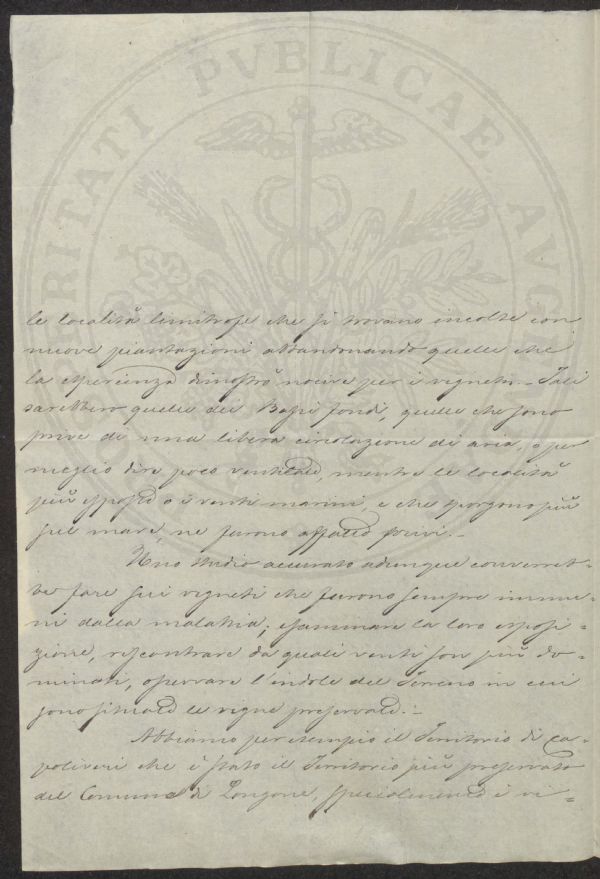 PROSPERITATI PVBLICAE AVG
le località limitrofe che si trovano incolte con
nuove piantazioni abbandonando quelle che
la esperienza dimostrò nocive per i vigneti. Tali
sarebbero quelle dei Bassi fondi, quelle che sono
prive di una libera circolazione di aria, o per
meglio dire poco ventilate, mentre le località
più esposte a i venti marini, e che sporgono più
sul mare, ne furono affatto privi.-
Uno studio accurato adunque converreb-
be fare sui vigneti che furono sempre immu-
ni dalla malattia; esaminare la loro esposi-
zione, riscontrare da quali venti son più do-
minati, osservare l'indole del Terreno in cui
sono situate le vigne preservate.-
Abbiamo per esempio il Territorio di Ca-
poliveri che è stato il Territorio più preservato
del Comune di Longone, specialmente i vi-